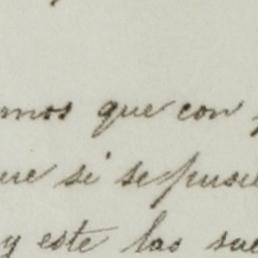 mos que con
ue si se pusie
y este las sue